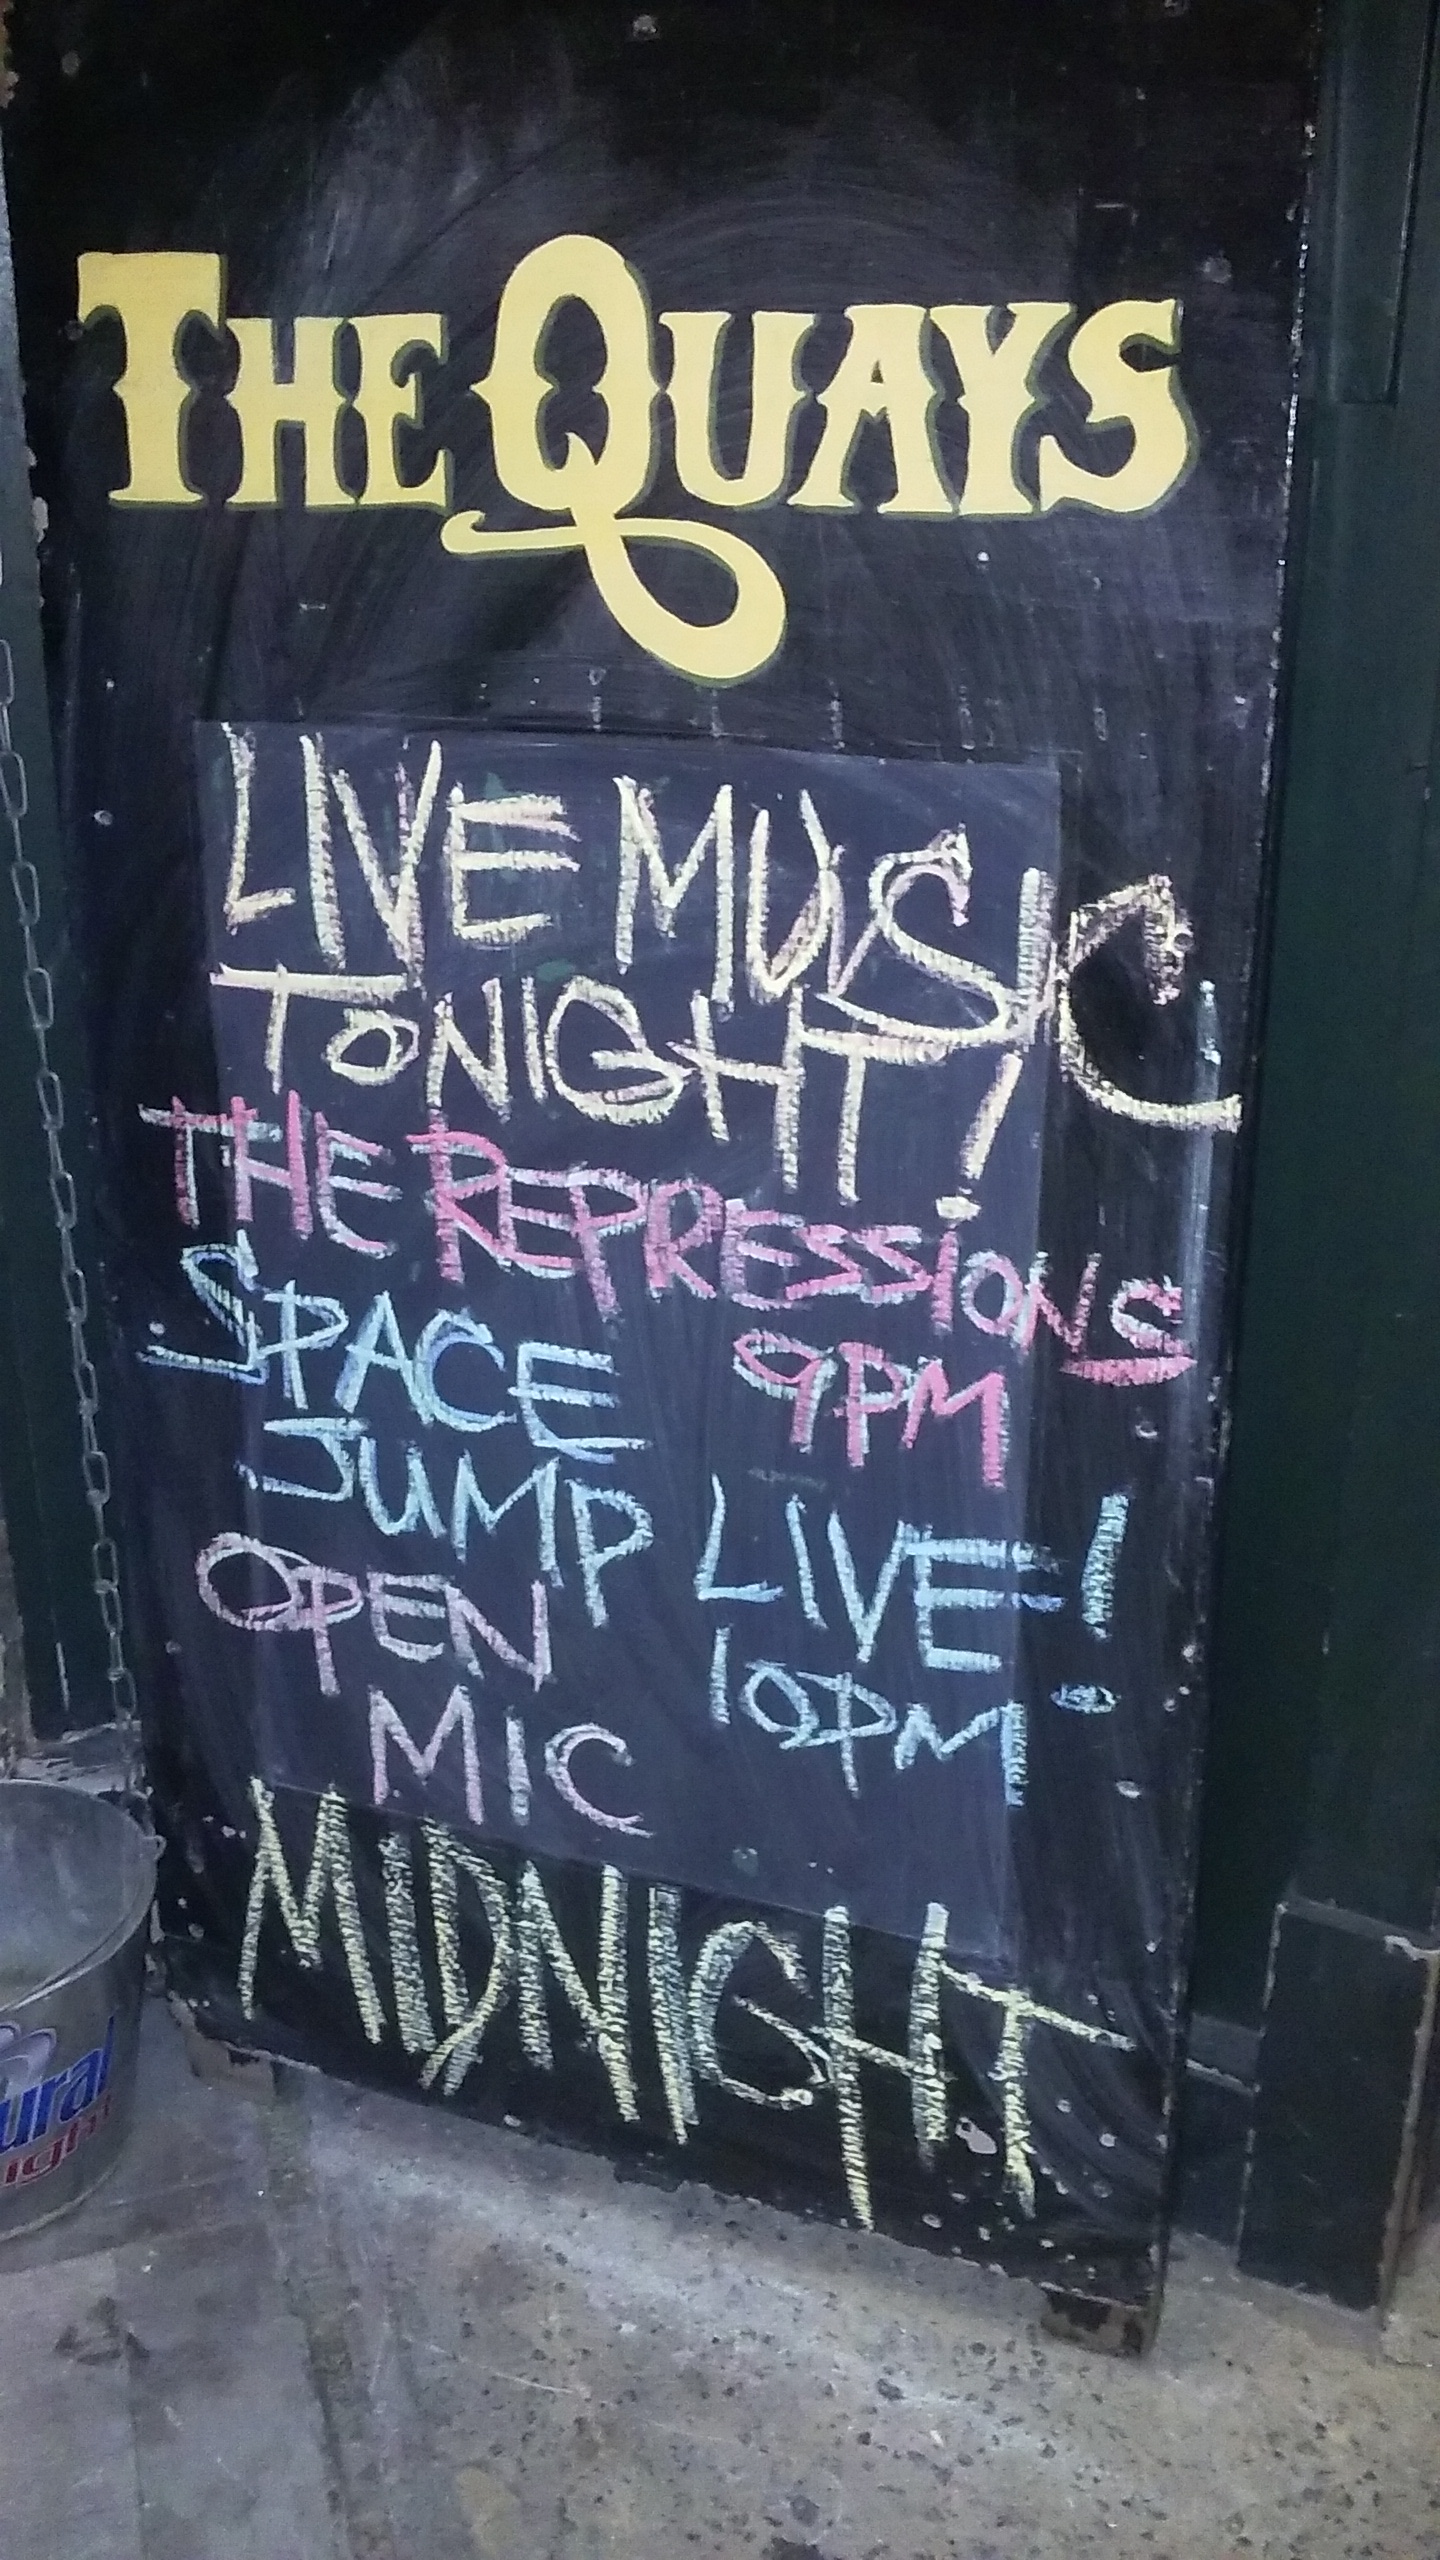 THE QUAYS
LIVE MUSIC
TONIGHT!
THE REPRESSIONS
9PM
SPACE
JUMP LIVE!
10PM
OPEN
MIC
MIDNIGHT